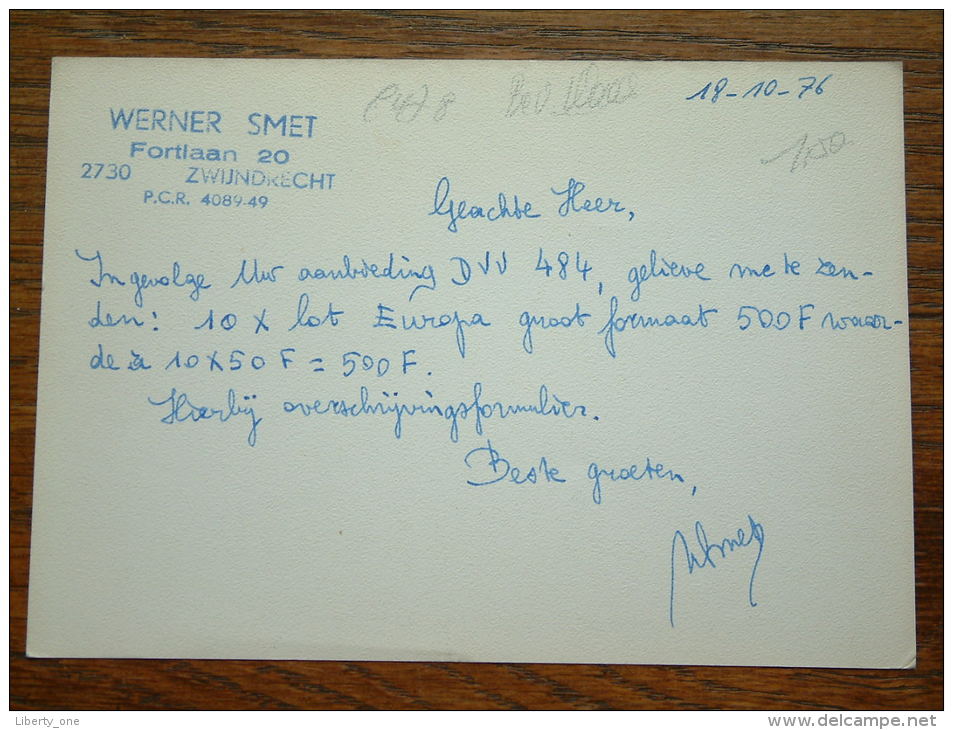 18-10-76
WERNER SMET
Fortlaan 20
2730 ZWIJNDRECHT
P.C.R. 4089-49
Geachte Heer,
Ingevolge Uw aanbieding DVV 484, gelieve me te zen-
den: 10 x lot Europa groot formaat 500F waar-
de à 10x50 F = 500 F.
Hierbij overschrijvingsformulier.
Beste groeten,
WSmet
Liberty_one
www.delcampe.net